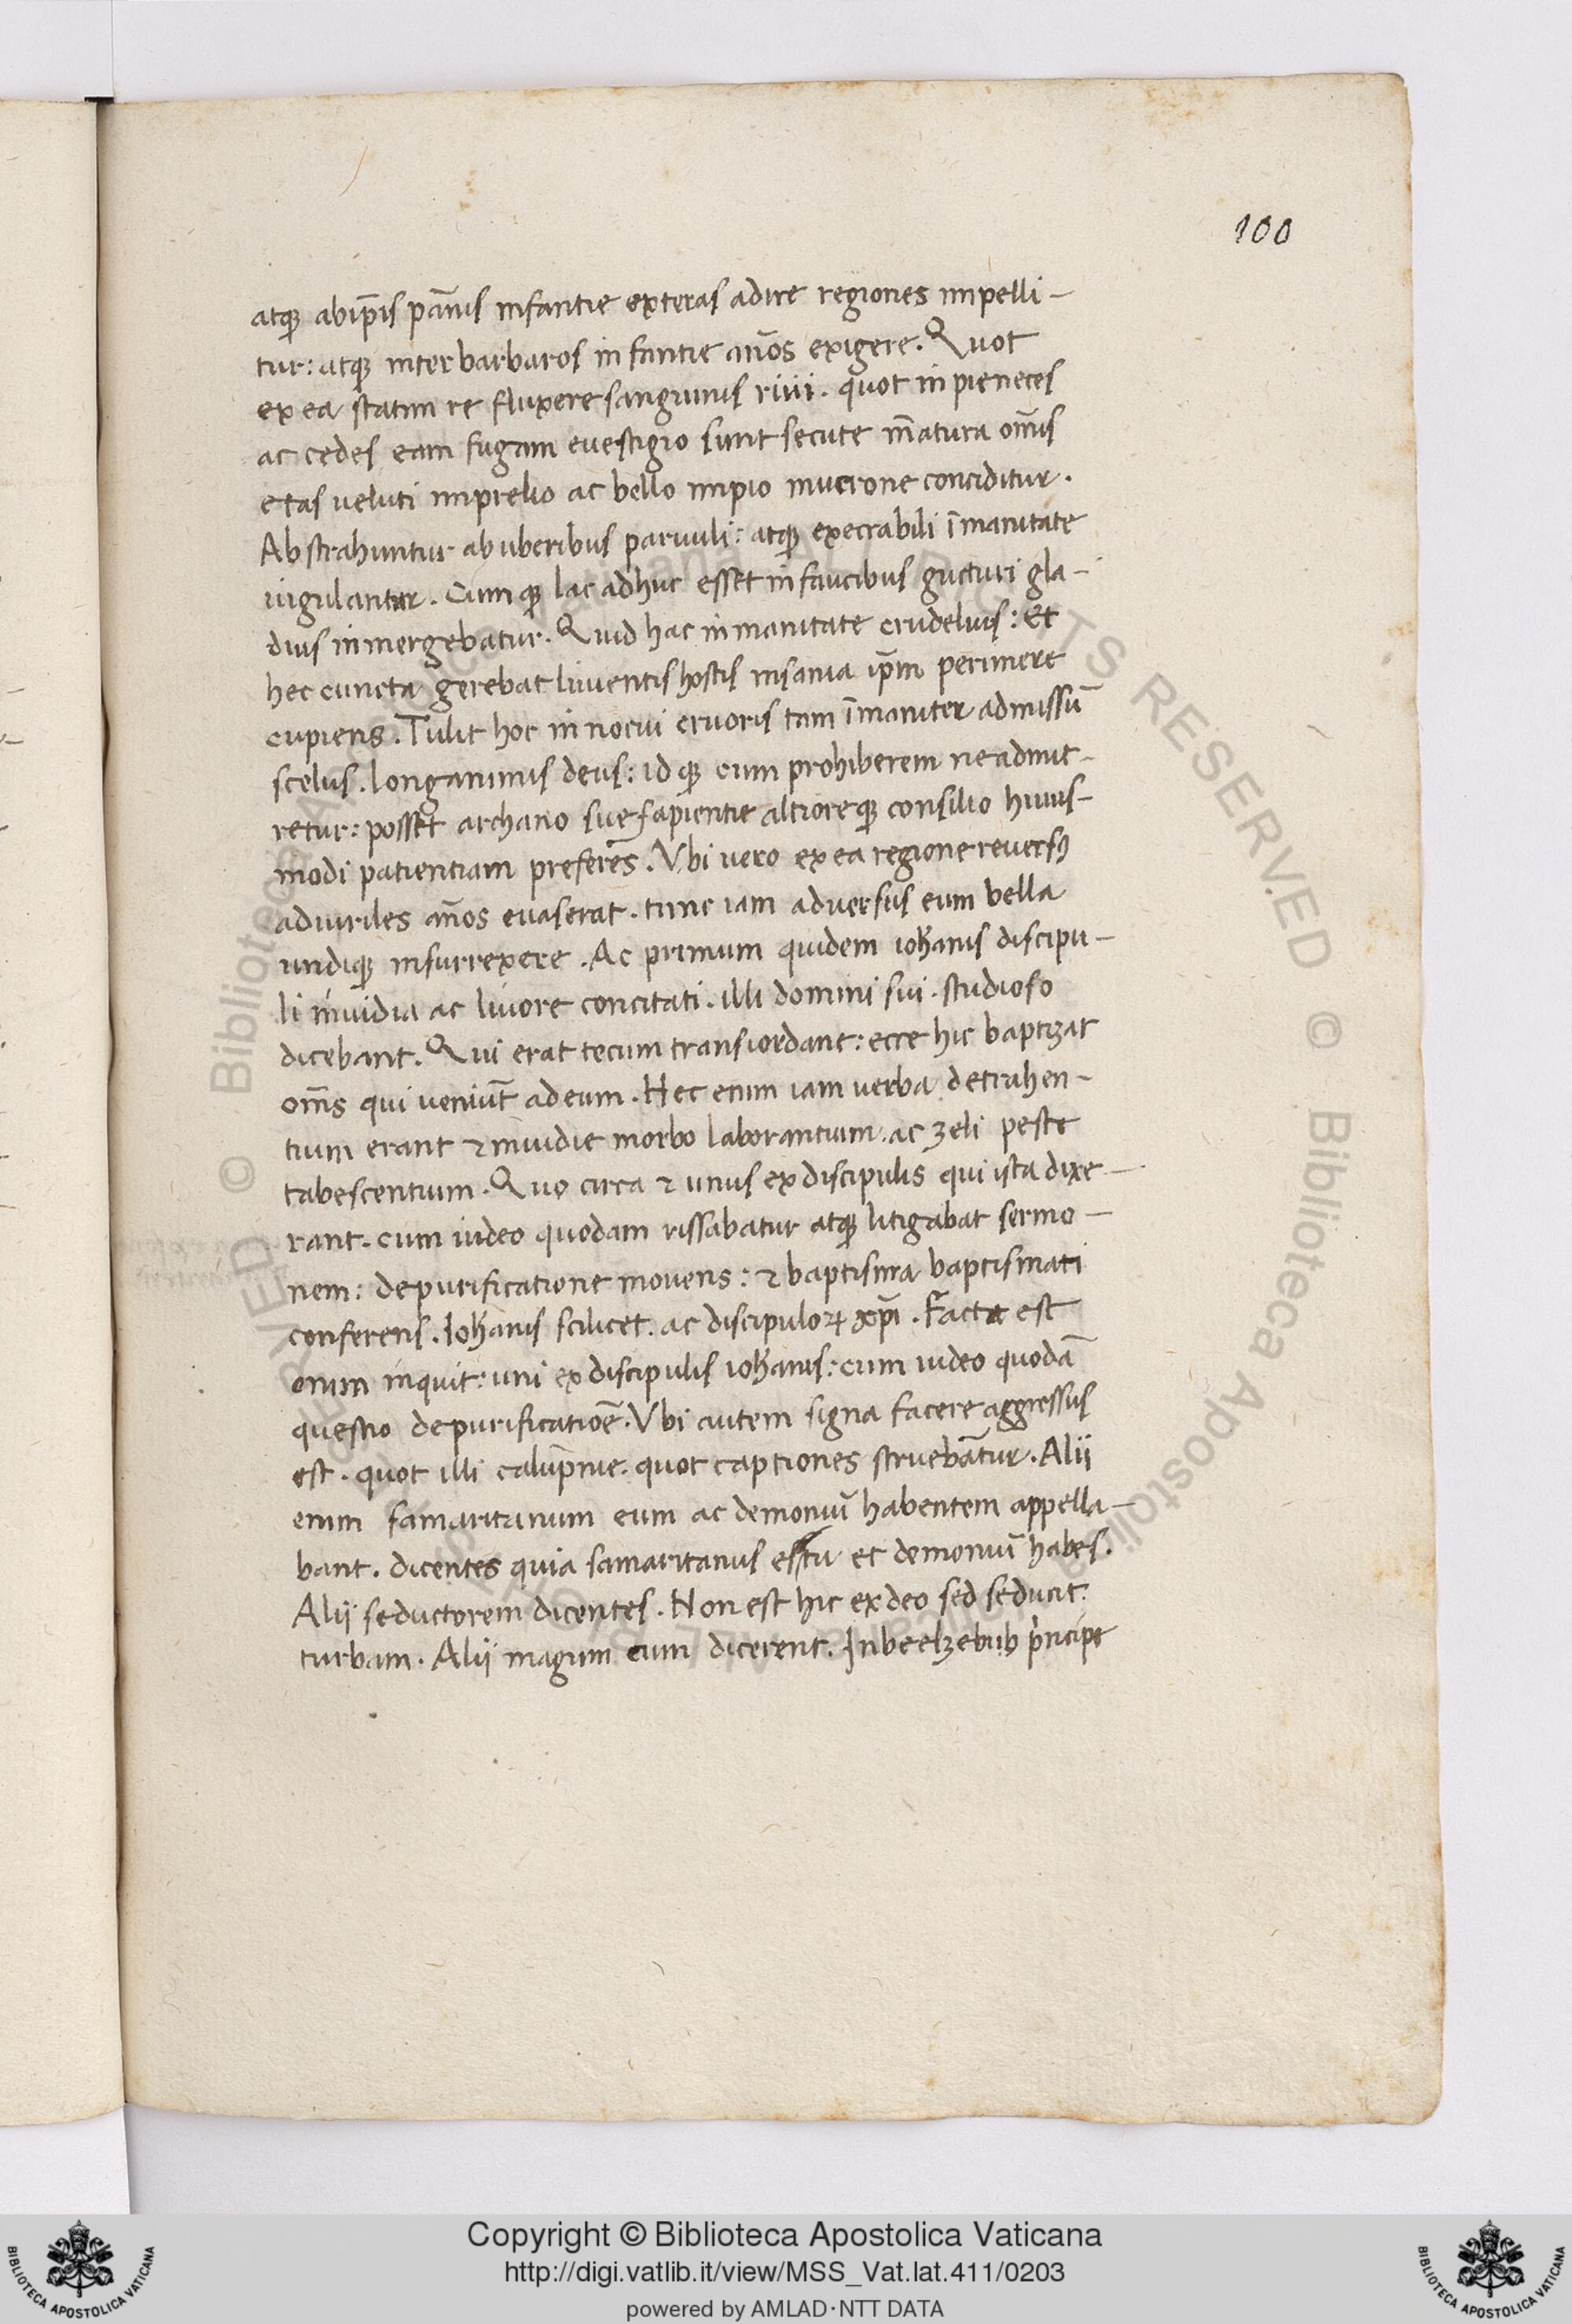 100
atqꝫ ab ip̄is pānis infantie exteras adire regiones impelli-
tur: atqꝫ inter barbaros infantie an̄os exigere. Quot
ex ea statim re fluxere sanguinis riui. quot inpie neces
ac cedes eam fugam euestigio sunt secute īmatura om̄is
etas veluti in prelio ac bello impio mucrone conciditur.
Abstrahuntur ab uberibus paruuli: atqꝫ execrabili īmanitate
iugulantur. Cumqꝫ lac adhuc esset in faucibus gucturi gla-
dius inmergebatur. Quid hac inmanitate crudelius: Et
hec cuncta gerebat liuentis hostis insania ip̄m perimere
cupiens. Tulit hoc innocui cruoris tam īmaniter admissū
scelus. longanimis deus: idqꝫ cum prohiberem ne admit-
retur: posset archano sue sapientie altioreqꝫ consilio huius-
modi patientiam preferēs. Vbi uero ex ea regione reuersꝰ
ad uiriles an̄os euaserat. tunc iam aduersus eum bella
undiqꝫ insurrexere. Ac primum quidem ioh̄anis discipu-
li inuidia ac liuore concitati. illi domini sui. studioso
dicebant. Qui erat tecum trans iordanē: ecce hic baptizat
om̄s qui veniūt ad eum. Hec enim iam uerba detrahen-
tium erant ⁊ inuidie morbo laborantium. ac zeli peste
tabescentium. Quo circa ⁊ unus ex discipulis qui ista dixe-
rant. cum iudeo quodam rissabatur atqꝫ litigabat sermo-
nem: de purificatione mouens: ⁊ baptisma baptismati
conferens. Ioh̄anis scilicet. ac discipuloꝝ xp̄i. Facta est
enim inquit: uni ex discipulis ioh̄anis: cum iudeo quodā
questio de purificatiōe. Vbi autem signa facere aggressus
est. quot illi calūpnie. quot captiones struebātur. Alii
enim samaritanum eum ac demoniū habentem appella-
bant. dicentes quia samaritanus es tu et demoniū habes.
Alii seductorem dicentes. Non est hic ex deo sed seducit
turbam. Alii magum cum dicerent. In beelzebub prīncipe
Copyright © Biblioteca Apostolica Vaticana
http://digi.vatlib.it/view/MSS_Vat.lat.411/0203
powered by AMLAD·NTT DATA